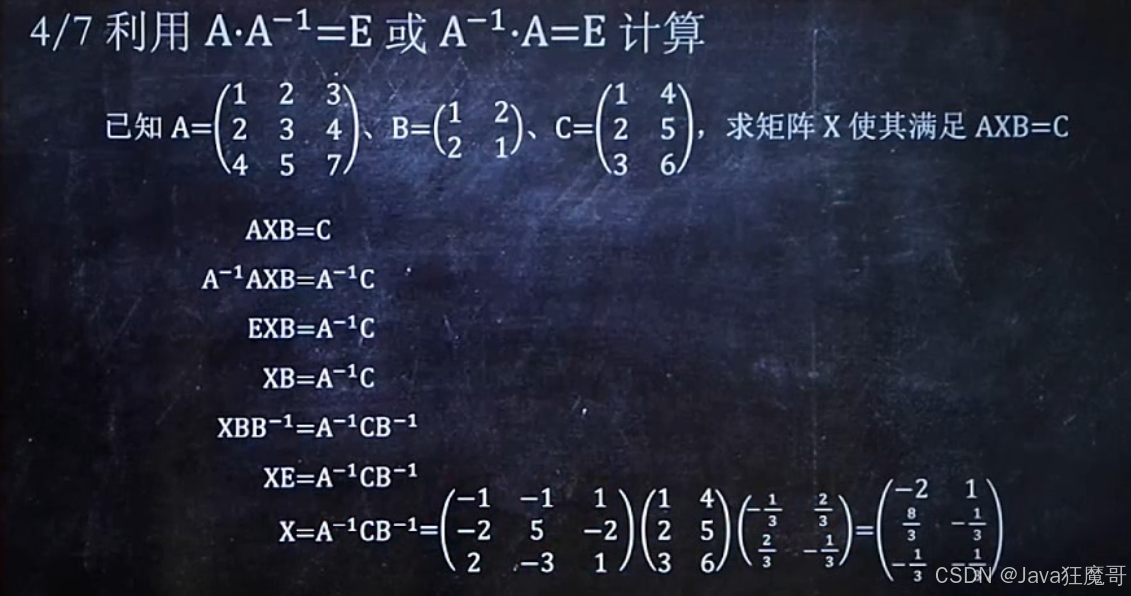 4/7 利用 A·A⁻¹=E 或 A⁻¹·A=E 计算
已知 A=(1 2 3; 2 3 4; 4 5 7)、B=(1 2; 2 1)、C=(1 4; 2 5; 3 6)，求矩阵 X 使其满足 AXB=C
AXB=C
A⁻¹AXB=A⁻¹C
EXB=A⁻¹C
XB=A⁻¹C
XBB⁻¹=A⁻¹CB⁻¹
XE=A⁻¹CB⁻¹
X=A⁻¹CB⁻¹=(−1 −1 1; −2 5 −2; 2 −3 1)(1 4; 2 5; 3 6)(−1/3 2/3; 2/3 −1/3)=(−2 1; 8/3 −1/3; −1/3 −1/3)
CSDN @Java狂魔哥